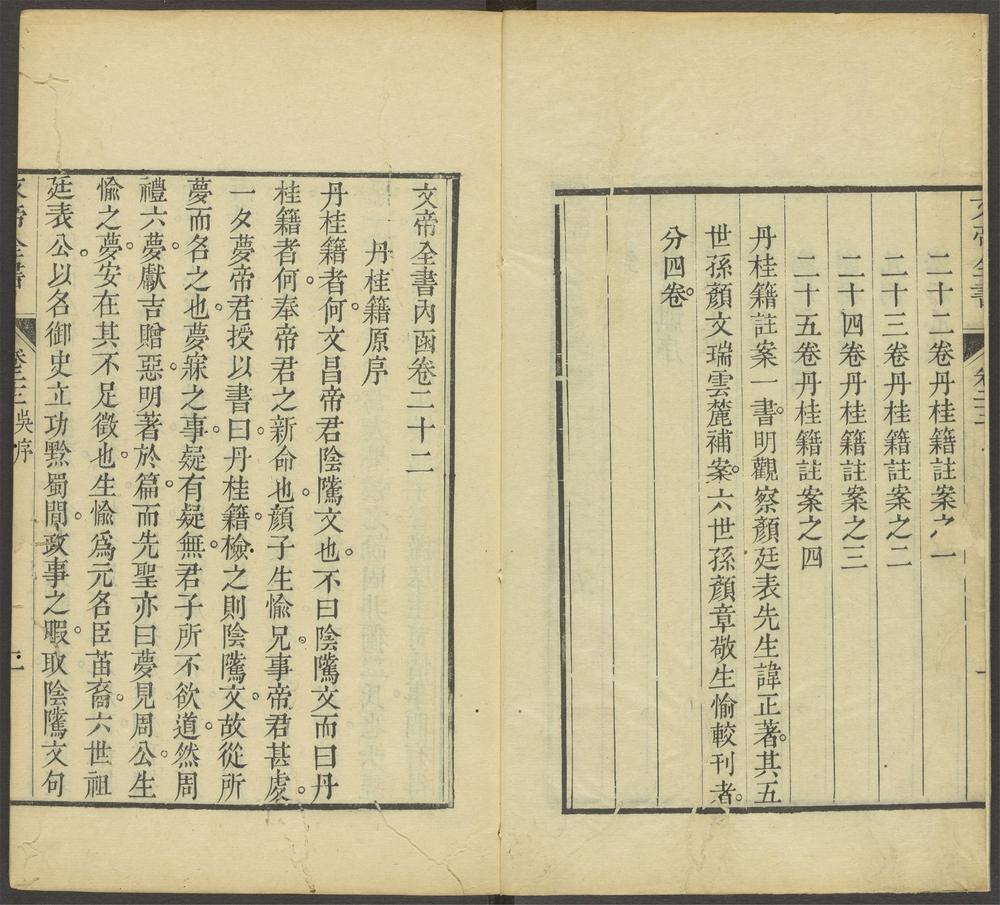 文帝全書
卷二十二
二十二卷丹桂籍註案之一
二十三卷丹桂籍註案之二
二十四卷丹桂籍註案之三
二十五卷丹桂籍註案之四
丹桂籍註案一書。明觀察顏廷表先生諱正著。其五
世孫顏文瑞雲麓補案。六世孫顏章敬生愉較刊者。
分四卷。
文帝全書內函卷二十二
丹桂籍原序
丹桂籍者何。文昌帝君陰騭文也。不曰陰騭文而曰丹
桂籍者何。奉帝君之新命也。顏子生愉兄。事帝君甚虔。
一夕夢帝君。授以書。曰丹桂籍。檢之則陰騭文。故從所
夢而名之也。夢寐之事。疑有疑無。君子所不欲道。然周
禮六夢。獻吉贈惡。明著於篇。而先聖亦曰夢見周公。生
愉之夢。安在其不足徵也。生愉爲元名臣苗裔。六世祖
廷表公。以名御史立功黔蜀間。政事之暇。取陰騭文句
文帝全書
吳序
二